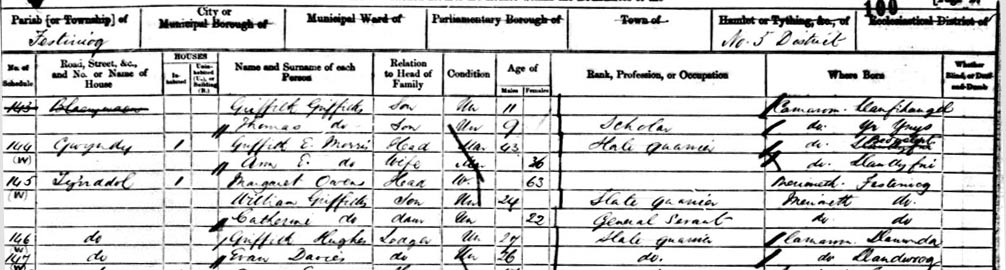 100
Parish [or Township] of City or Municipal Borough of Municipal Ward of Parliamentary Borough of Town of Hamlet or Tything, &c., of Ecclesiastical District of
Festiniog No. 5 District
No. of Schedule Road, Street, &c., and No. or Name of House HOUSES Inhabited Uninhabited (U.), or Building (B.) Name and Surname of each Person Relation to Head of Family Condition Age of Males Females Rank, Profession, or Occupation Where Born Whether Blind, or Deaf-and-Dumb
143 Griffith Griffiths Son Un 11 Carnarvon Llanfihangel
Thomas do Son Un 9 Scholar do Yr Ynys
144 Gwyndy 1 Griffith E. Morris Head Mar 43 Slate Quarrier do
(W) Ann E. do Wife Mar 36 do Llanllyfni
145 Tynddol 1 Margaret Owens Head W. 63 Merioneth Festiniog
(W) William Griffiths Son Un 24 Slate quarrier Merioneth do
Catherine do daur Un 22 General Servant do do
146 do Griffith Hughes Lodger Un 27 Slate quarrier Carnarvon Llanwnda
(W)
147 do Evan Davies do Un 26 do. do Llandwrog
(W)